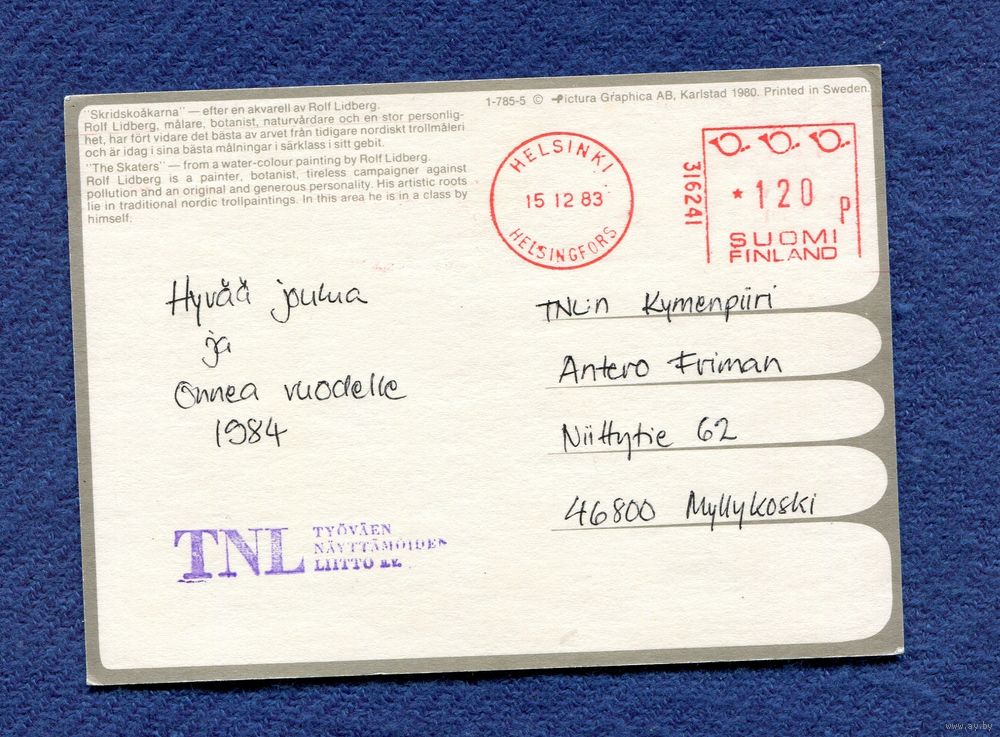 "Skridskoåkarna" — efter en akvarell av Rolf Lidberg.
Rolf Lidberg, målare, botanist, naturvårdare och en stor personlig-
het, har fört vidare det bästa av arvet från tidigare nordiskt trollmåleri
och är idag i sina bästa målningar i särklass i sitt gebit.
"The Skaters" — from a water-colour painting by Rolf Lidberg.
Rolf Lidberg is a painter, botanist, tireless campaigner against
pollution and an original and generous personality. His artistic roots
lie in traditional nordic trollpaintings. In this area he is in a class by
himself.
1-785-5 © Pictura Graphica AB, Karlstad 1980. Printed in Sweden.
HELSINKI
15 12 83
HELSINGFORS
316241
* 120 P
SUOMI
FINLAND
Hyvää joulua
ja
Onnea vuodelle
1984
TNL:n Kymenpiiri
Antero Friman
Niittytie 62
46800 Myllykoski
TNL
TYÖVÄEN
NÄYTTÄMÖIDEN
LIITTO R.Y.
www.ay.by